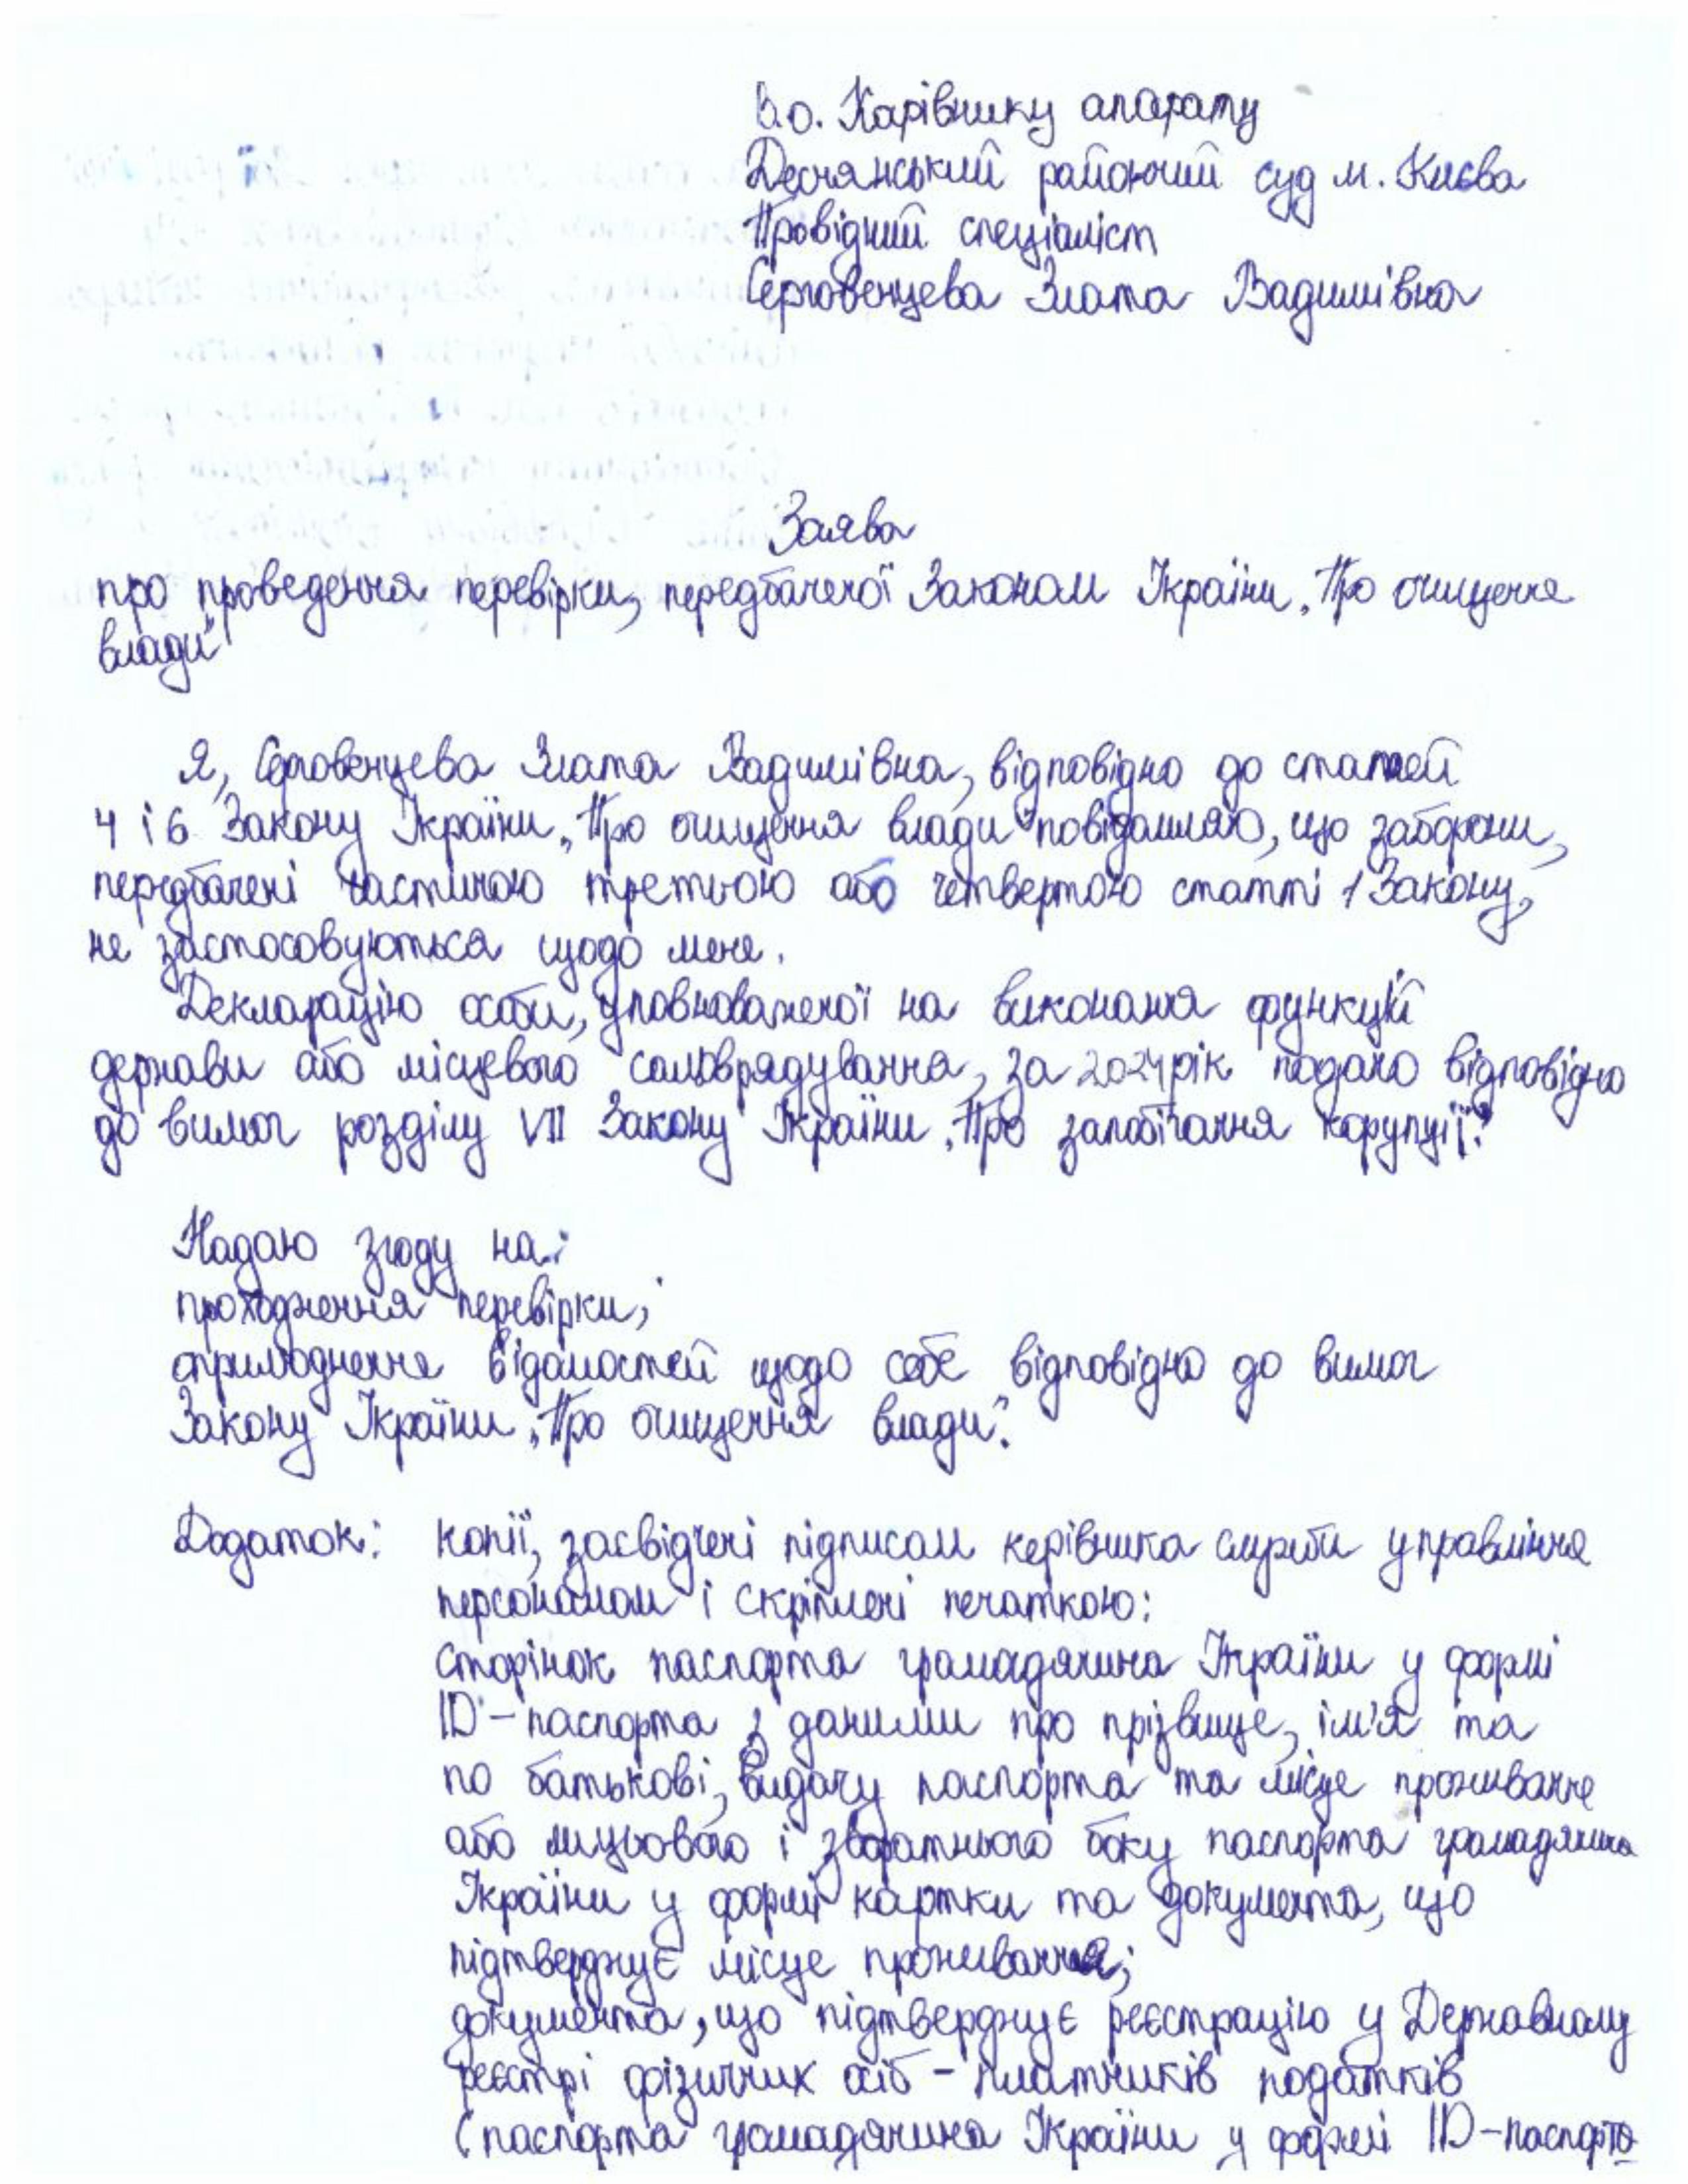 В.о. Карівнику апарату
Деснянський районний суд м. Києва
Провідний спеціаліст
Серговенцева Злата Вадимівна
Заява
про проведення перевірки, передбаченої Законом України „Про очищення
влади"
Я, Серговенцева Злата Вадимівна, відповідно до статей
4 і 6 Закону України „Про очищення влади" повідомляю, що заборони,
передбачені частиною третьою або четвертою статті 1 Закону,
не застосовуються щодо мене.
Декларацію особи, уповноваженої на виконання функцій
держави або місцевого самоврядування, за 2024 рік подано відповідно
до вимог розділу VII Закону України „Про запобігання корупції".
Надаю згоду на:
проходження перевірки;
оприлюднення відомостей щодо себе відповідно до вимог
Закону України „Про очищення влади".
Додаток: копії, засвідчені підписом керівника служби управління
персоналом і скріплені печаткою:
сторінок паспорта громадянина України у формі
ID-паспорта з даними про прізвище, ім'я та
по батькові, видачу паспорта та місце проживання
або лицьового і зворотнього боку паспорта громадянина
України у формі картки та документа, що
підтверджує місце проживання;
документа, що підтверджує реєстрацію у Державному
реєстрі фізичних осіб - платників податків
(паспорта громадянина України у формі ID-паспорта